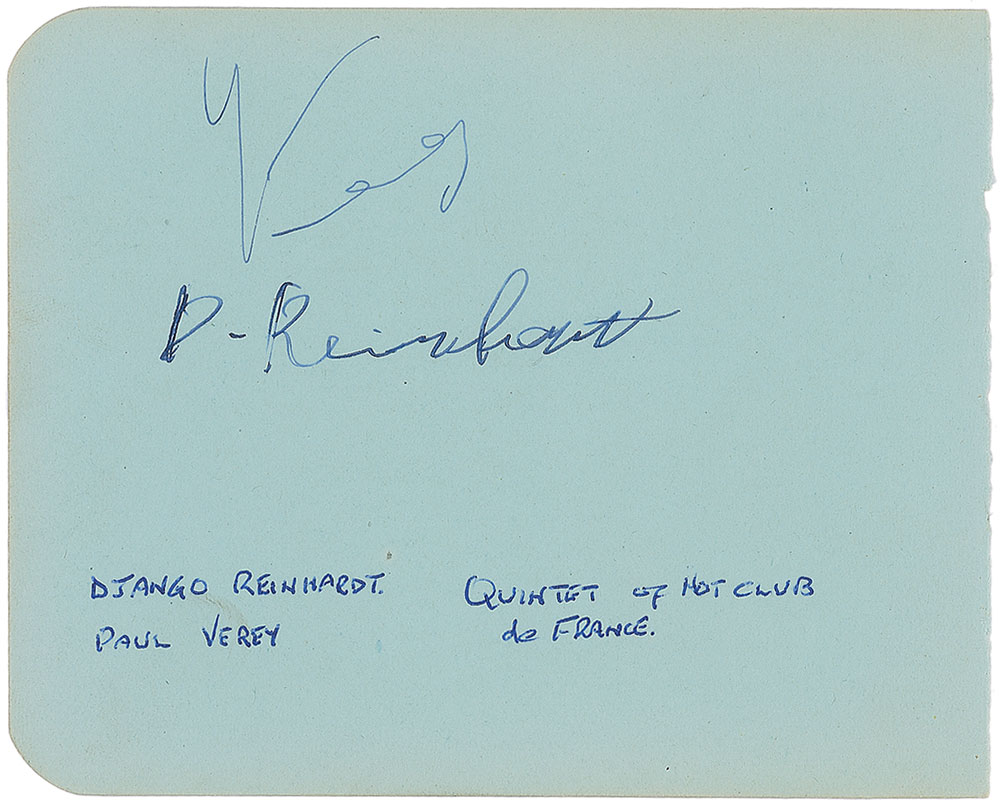 D-Reinhardt
DJANGO REINHARDT.
PAUL VEREY
QUINTET of HOT CLUB
de FRANCE.